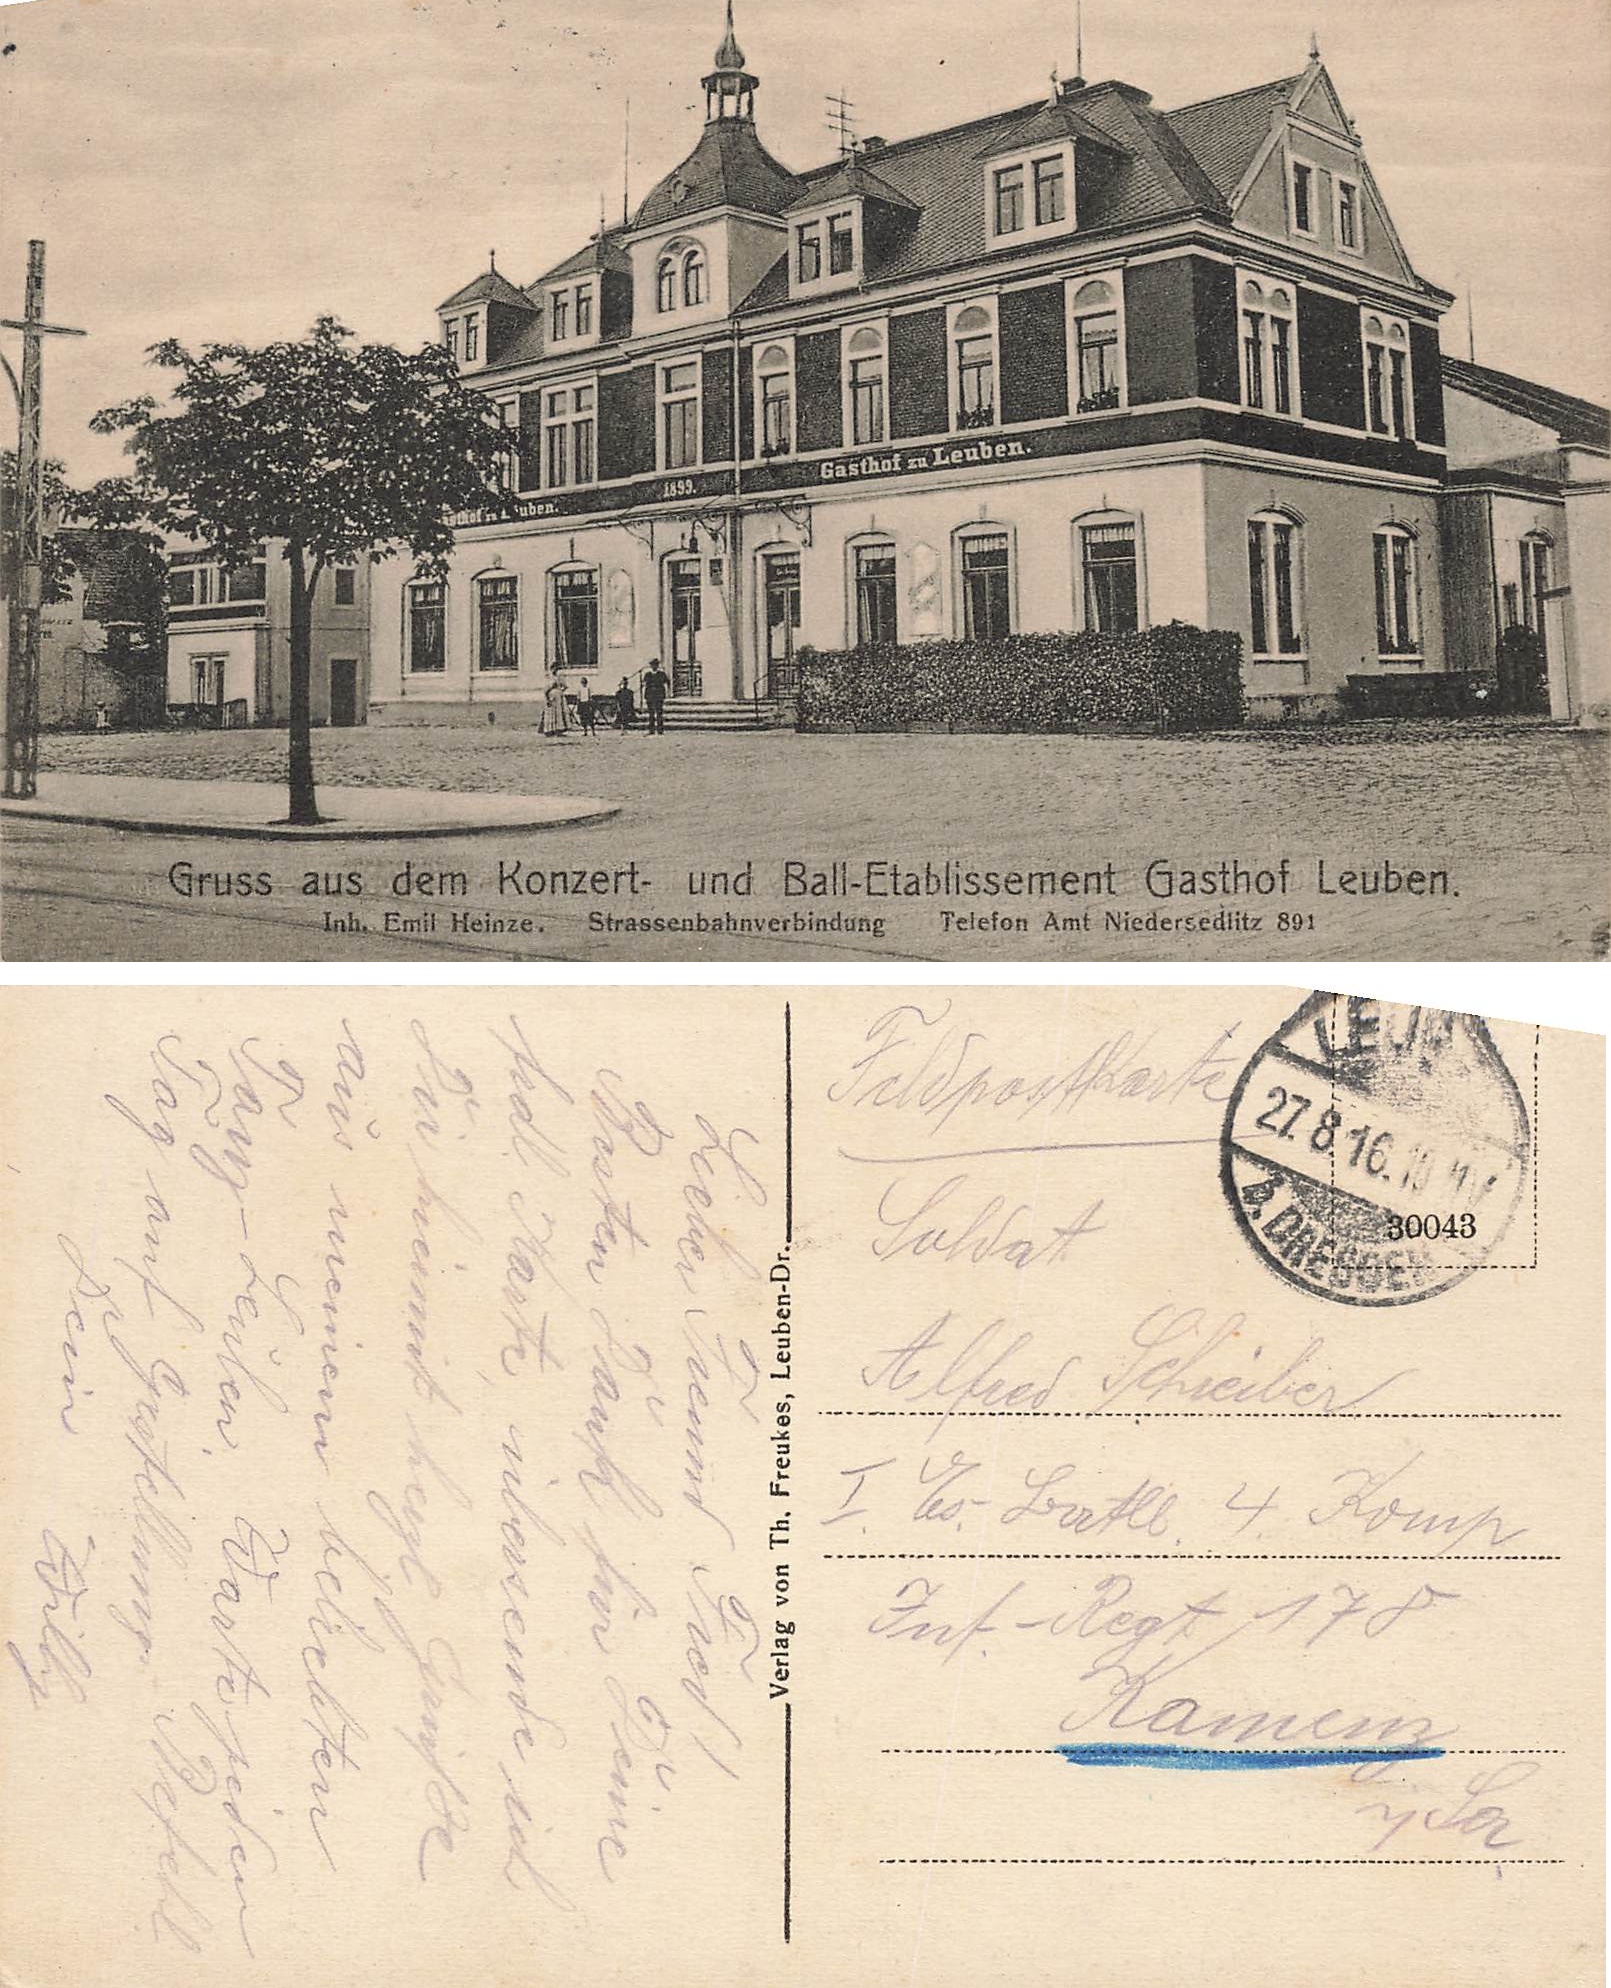 Gasthof zu Leuben.
1899.
Gasthof zu Leuben.
Gruss aus dem Konzert- und Ball-Etablissement Gasthof Leuben.
Inh. Emil Heinze. Strassenbahnverbindung Telefon Amt Niedersedlitz 891
Lieber Freund Fred!
Besten Dank für Deine
frdl. Karte, übersende ich
Dir hiermit herzl. Grüße
aus meinem beliebten
Tanz-Leuben. Warte jeden
Tag auf Gestellungs-Befehl
Dein Willy
Verlag von Th. Freukes, Leuben-Dr.
Feldpostkarte
LEUB
27.8.16.10
B. DRESDEN
30043
Soldat
Alfred Schreiber
I. Es. Batll. 4. Komp
Inf.-Regt 178
Kamenz
i/Sa.